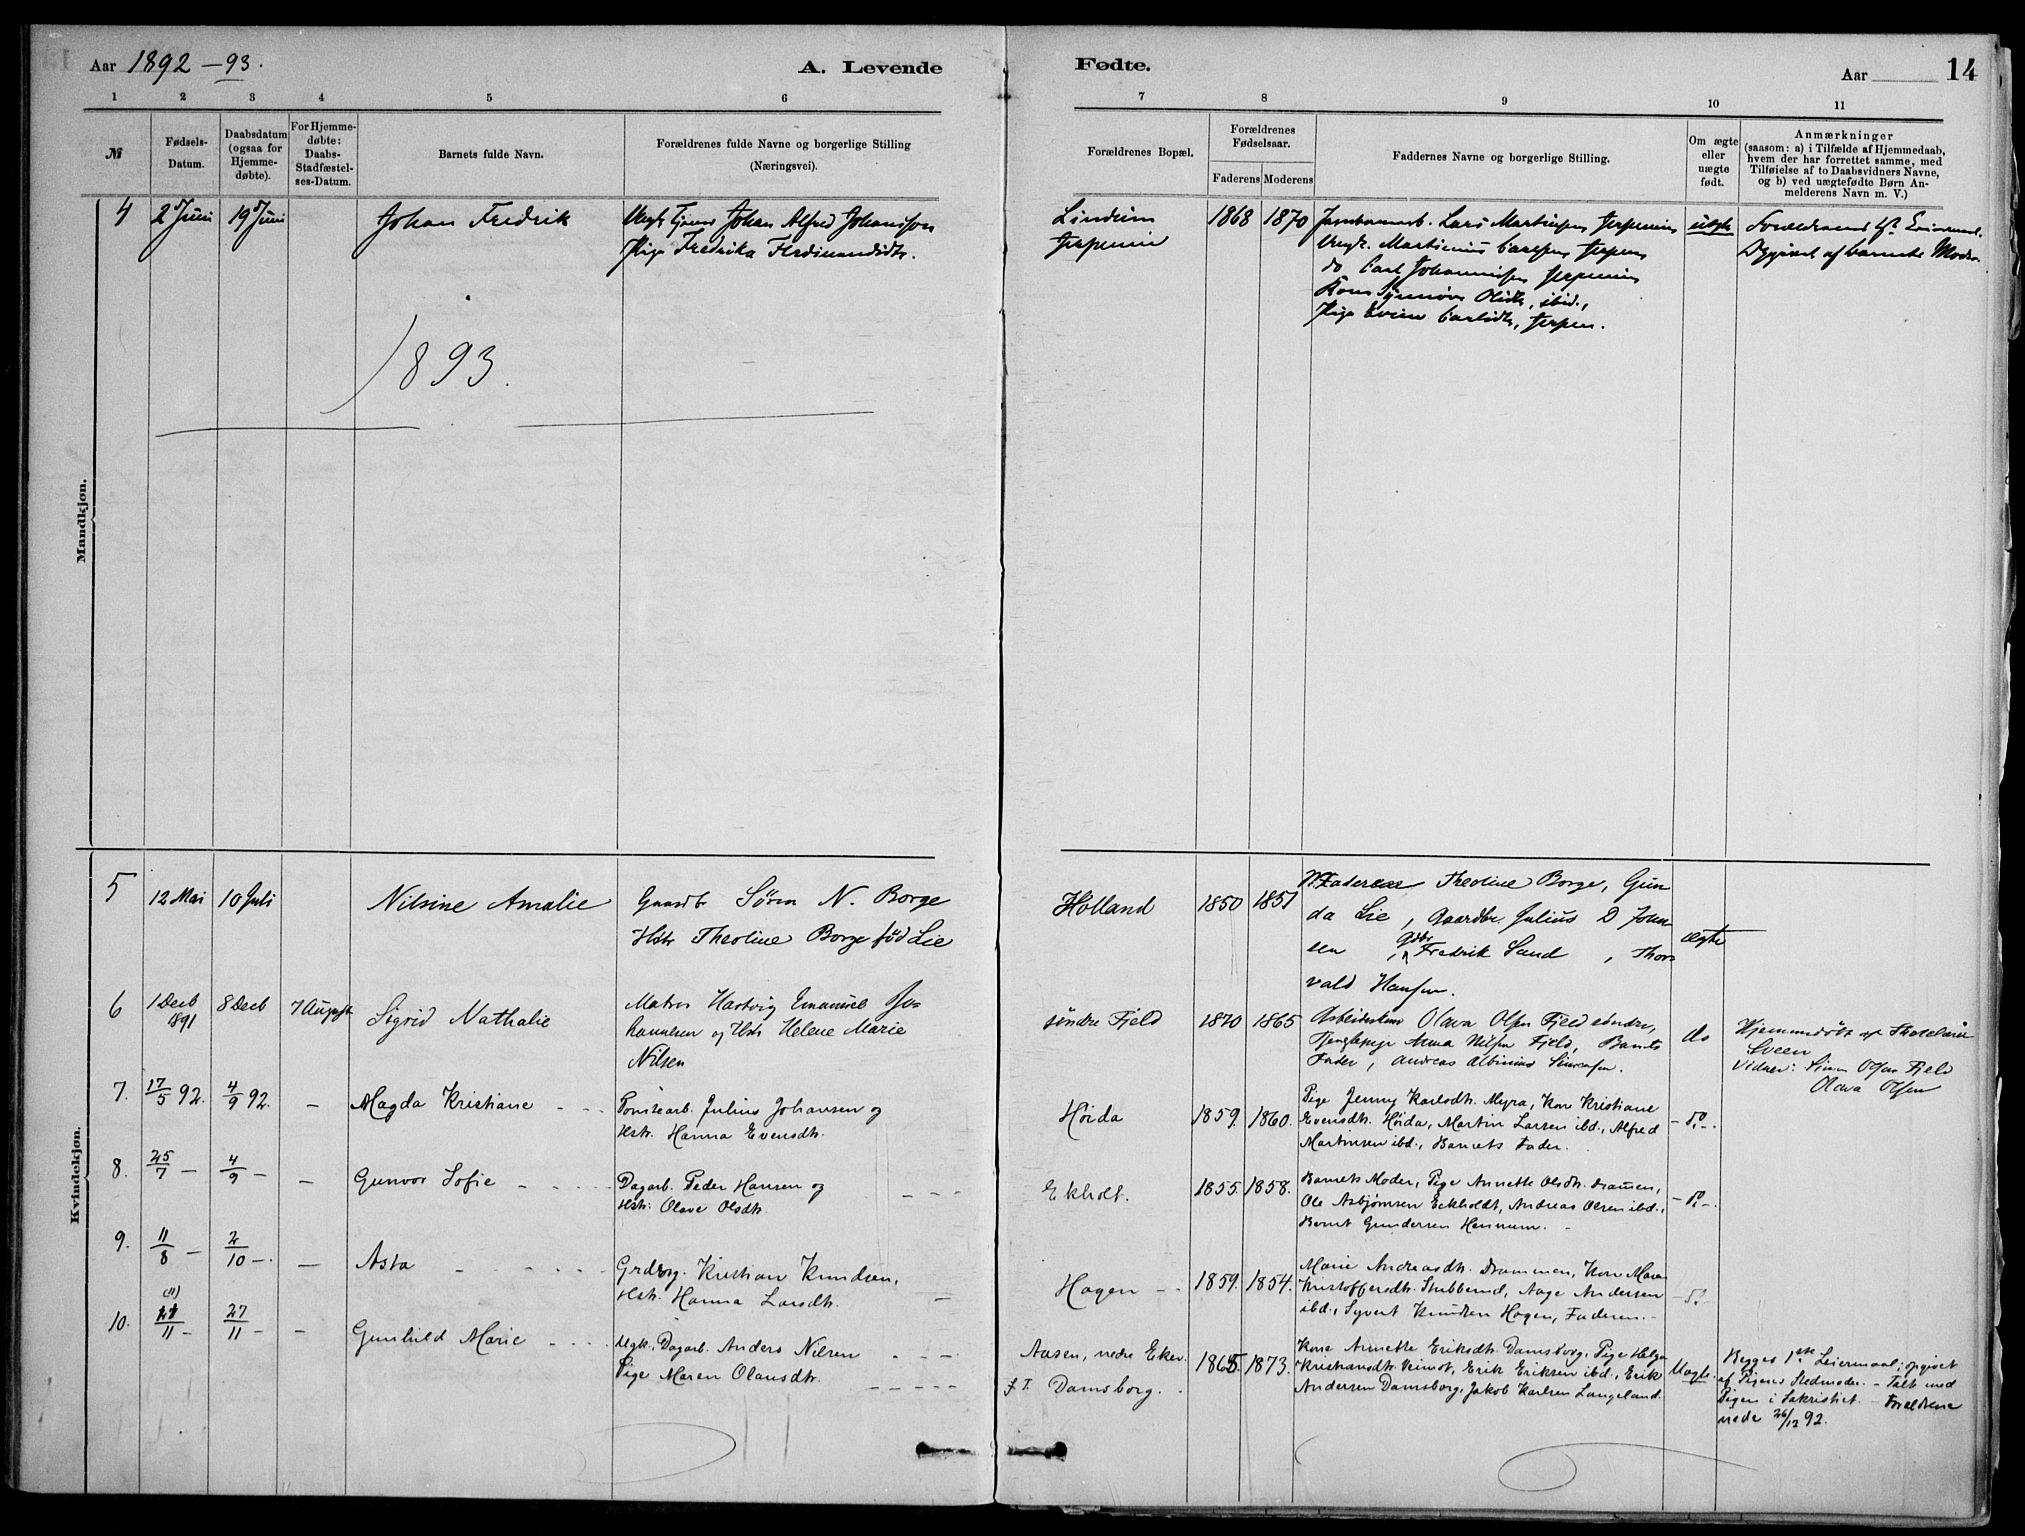 Aar 1892 – 93.
A. Levende
Fødte.
Aar
14
1 2 3 4 5 6 7 8 9 10 11
№
Fødsels-
Datum.
Daabsdatum
(ogsaa for
Hjemme-
døbte).
For Hjemme-
døbte:
Daabs-
Stadfæstel-
ses-Datum.
Barnets fulde Navn.
Forældrenes fulde Navne og borgerlige Stilling
(Næringsvei).
Forældrenes Bopæl.
Forældrenes
Fødselsaar.
Faderens Moderens
Faddernes Navne og borgerlige Stilling.
Om ægte
eller
uægte
født.
Anmærkninger
(saasom: a) i Tilfælde af Hjemmedaab,
hvem der har forrettet samme, med
Tilføielse af to Daabsvidners Navne,
og b) ved uægtefødte Børn An-
melderens Navn m. V.)
Mandkjøn.
4
2 Juni
19 Juni
Johan Fredrik
Johan Alfred Johansson
Pige Fredrika Ferdinandsdtr.
Lindum
1868
1870
Lars Martinsen
do Carl Johannesen
Olsdtr, ibid.,
Pige
uægte
af barnets Moder
1893.
Kvindekjøn.
5
12 Mai
10 Juli
Nilsine Amalie
Gaardbr Søren N. Borge
Hstr Theoline Borge fød Lie
Holland
1850
1851
Theoline Borge, Gun
da Lie, Gaardbr. Julius D John
sen, Gdbr Fredrik Sand, Thor
vald Hansen.
ægte
6
1 Decb
1891
8 Decb
7 August
Sigrid Nathalie
Matros Hartvig Emanuel Jo-
hannesen og Hstr Helene Marie
Nilsen
søndre Fjeld
1870
1865
Olava Olsen Fjeld søndre,
Anna Nilsen Fjeld, Barnets
Fader, Andreas Albinius
do
Hjemmedøbt af Skolelærer
Sveen
Vidner: Olsen Fjeld
Olava Olsen
7.
17/5 92.
4/9 92.
–
Magda Kristiane
Tomtearb. Julius Johansen og
Hstr. Hanna Evensdtr.
Høida
1859.
1860.
Pige Jenny Karlsdtr. Myra, Kone Kristiane
Evensdtr. Høida, Martin Larsen ibd., Alfred
Martinsen ibd., Barnets Fader.
– do –
8.
25/7 –
4/9 –
–
Gunvor Sofie
Dagarb. Peder Hansen og
Hstr: Olave Olsdtr.
Ekholt.
1855.
1858.
Barnets Moder, Pige Annette Olsdtr. Drammen,
Ole Asbjørnsen Eckholdt, Andreas Olsen ibd.,
Bernt Gundersen Hennum.
– do –
9.
11/8 –
2/10 –
–
Asta
Grdbrg. Kristian Knudsen,
Hstr. Hanna Larsdtr.
Hagen
1859.
1854.
Marie Andreasdtr. Drammen, Kone Maren
Kristoffersdtr. Stubberud, Aage Andersen
ibd., Syvert Knudsen Hagen, Faderen.
– do
10.
(11)
21/11 –
27/11 –
–
Gunhild Marie
Ugk. Dagarb. Anders Nilsen
Pige Maren Olausdtr.
Aasen, nedre Eker
f. T. Damsborg.
1865.
1873.
Kone Annette Eriksdtr. Damsborg, Pige Helga
Kristiansdtr. Veimot, Erik Eriksen ibd., Erik
Andersen Damsborg, Jakob Karlsen Langeland.
Uægte.
Begges 1ste Leiermaal; opgivet
af Pigens Stedmoder. – Talt med
Pigen i Sakristiet. – Forældrene
viede 26/12 92.